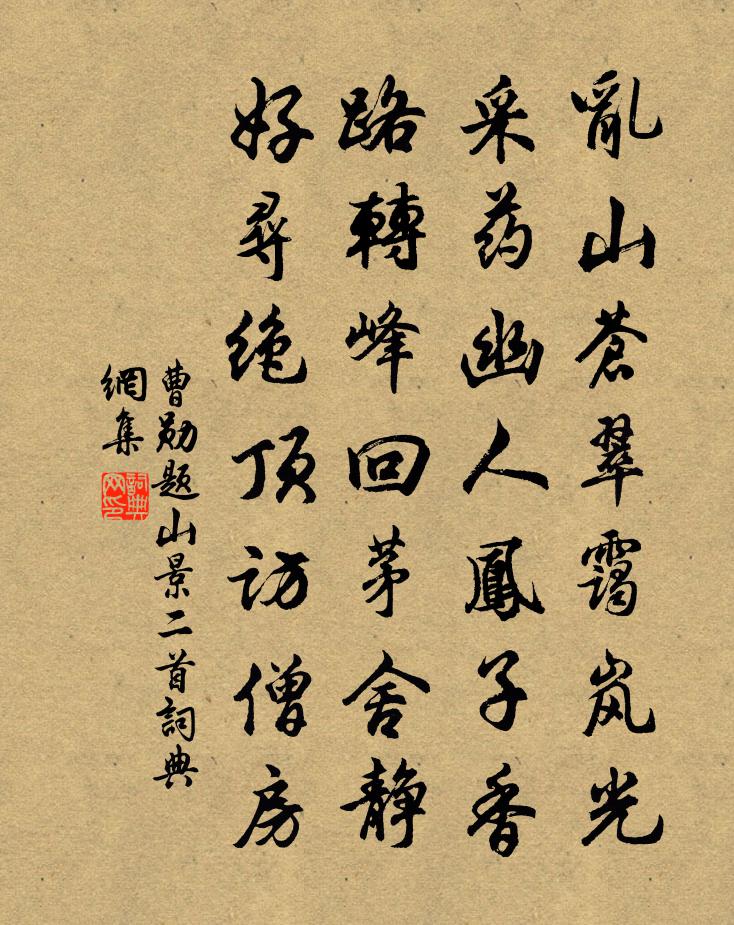 亂山蒼翠靄岚光
采药幽人鳳子香
路轉峰回茅舍静
好尋绝顶访僧房
曹勛题山景二首詞典
網集
詞典
网印